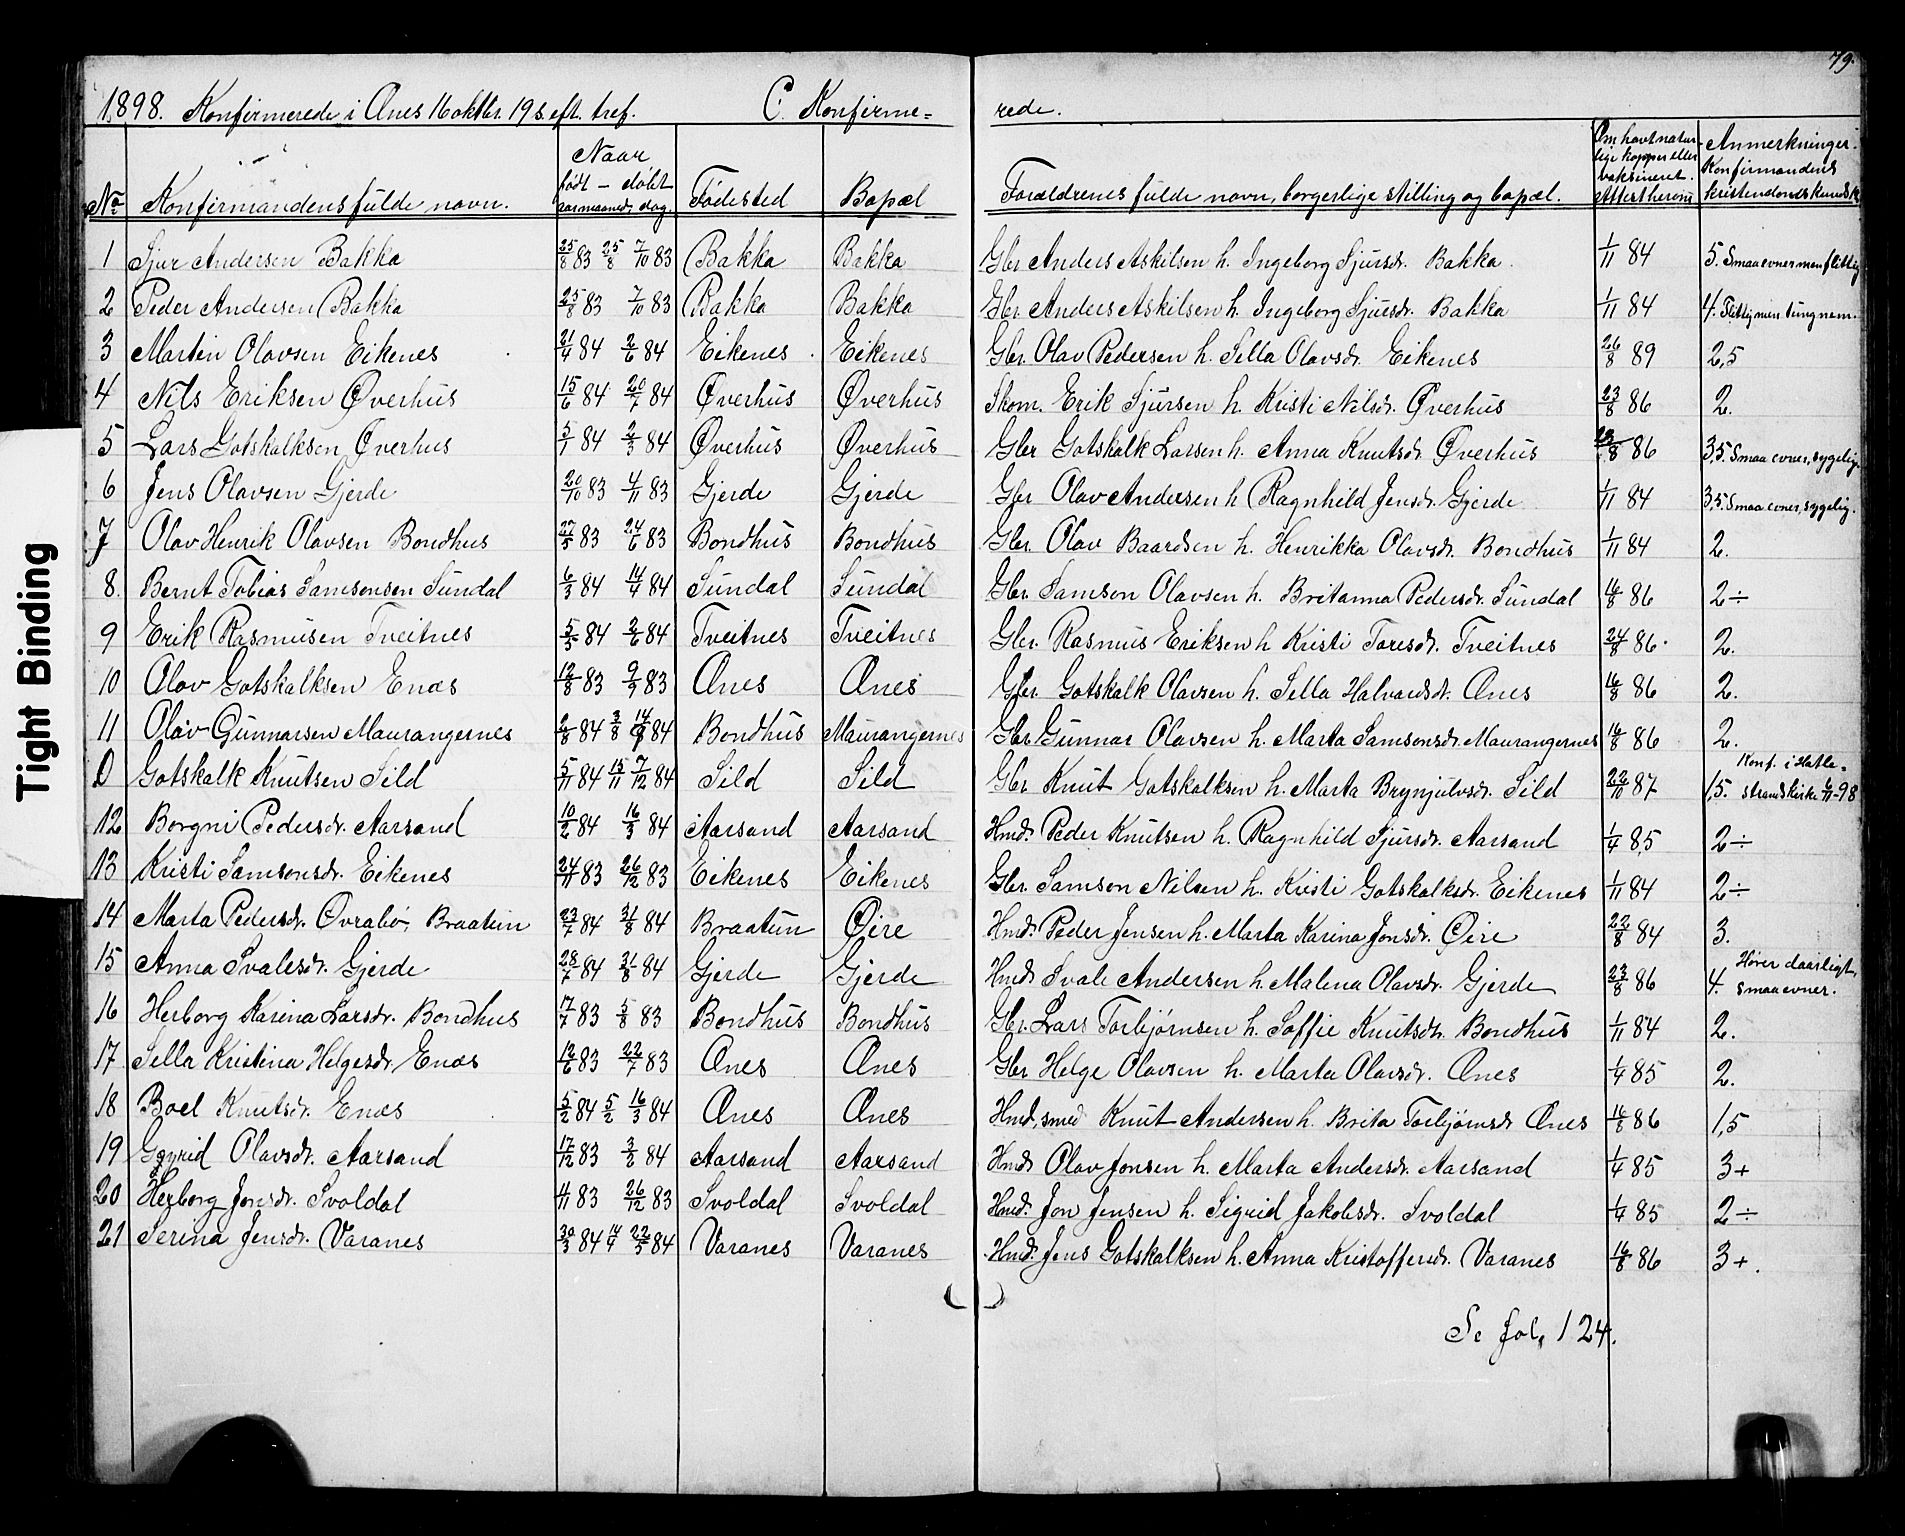 79.
1898. Konfirmerede i Ænes 16 oktbr. 19 s. eft. tref. C. Konfirme= rede.
No Konfirmandens fulde navn. Naar født - døbt aar maaned, dag. Fødested Bopæl Forældrenes fulde navn, borgerlige stilling og bopæl. Om havt naturlige kopper eller vaksineret. Attest herom Anmerkninger. Konfirmandens kristendomskundsk.
1 Sjur Andersen Bakka 25/8 83 25/8 7/10 83 Bakka Bakka Gbr. Anders Askilsen h. Ingeborg Sjursdr. Bakka. 1/11 84 5. Smaa evner men flittig
2 Peder Andersen Bakka 25/8 83 7/10 83 Bakka Bakka Gbr. Anders Askilsen h. Ingeborg Sjursdr. Bakka 1/11 84 4. Flittig men tungnem.
3 Martin Olavsen Eikenes 21/4 84 2/6 84 Eikenes Eikenes Gbr. Olav Pedersen h. Sella Olavsdr. Eikenes 26/8 89 2,5
4 Nils Eriksen Øverhus 15/6 84 20/7 84 Øverhus Øverhus Skom. Erik Sjursen h. Kristi Nilsdr. Øverhus 23/8 86 2.
5 Lars Gotskalksen Øverhus 5/1 84 2/3 84 Øverhus Øverhus Gbr Gotskalk Larsen h. Anna Knutsdr. Øverhus 23/8 86 3,5. Smaa evner, sygelig.
6 Jens Olavsen Gjerde 20/10 83 4/11 83 Gjerde Gjerde Gbr Olav Andersen h Ragnhild Jensdr. Gjerde 1/11 84 3,5. Smaa evner, sygelig.
7 Olav Henrik Olavsen Bondhus 27/5 83 24/6 83 Bondhus Bondhus Gbr. Olav Baardsen h. Henrikka Olavsdr. Bondhus 1/11 84 2.
8. Bernt Tobias Samsonsen Sundal 6/3 84 14/4 84 Sundal Sundal Gbr. Samson Olavsen h. Britanna Pedersdr. Sundal 16/8 86 2÷
9 Erik Rasmusen Tveitnes 5/5 84 2/6 84 Tveitnes Tveitnes Gbr. Rasmus Eriksen h Kristi Toresdr. Tveitnes 24/8 86. 2.
10 Olav Gotskalksen Enæs 12/8 83 9/9 83 Ænes Ænes Gbr Gotskalk Olavsen h. Sella Halvardsdr. Ænes 16/8 86 2.
11 Olav Gunnarsen Maurangernes 2/8 84 3/8 14/9 84 Bondhus Maurangernes Gbr. Gunnar Olavsen h. Marta Samsonsdr. Maurangernes 16/8 86 2.
0 Gotskalk Knutsen Sild 5/11 84 15/11 7/12 84 Sild Sild Gbr. Knut Gotskalksen h. Marta Brynjulvsdr. Sild 22/10 87 1,5. Konf. i Hatlestrands kirke 6/11 98
12 Borgni Pedersdr. Aarsand 10/2 84 16/3 84 Aarsand Aarsand Hmd. Peder Knutsen h. Ragnhild Sjursdr. Aarsand 1/4 85 2÷
13 Kristi Samsonsdr. Eikenes 24/11 83 26/12 83 Eikenes Eikenes Gbr. Samson Nilsen h. Kristi Gotskalksdr. Eikenes 1/11 84 2÷
14 Marta Pedersdr. Øvrabø, Braatun 23/7 84 31/8 84 Braatun Øire Hmd. Peder Jensen h. Marta Karina Jonsdr. Øire 22/8 84 3.
15 Anna Svalesdr. Gjerde 28/7 84 31/8 84 Gjerde Gjerde Hmd Svale Andersen h. Malena Olavsdr. Gjerde 23/8 86 4. Hører daarligt, smaa evner.
16 Herborg Karina Larsdr. Bondhus 7/7 83 5/8 83 Bondhus Bondhus Gbr. Lars Torbjørnsen h. Soffie Knutsdr. Bondhus 1/11 84 2.
17 Sella Kristina Helgesdr. Enæs 12/6 83 22/7 83 Ænes Ænes Gbr Helge Olavsen h. Marta Olavsdr. Ænes 1/4 85 2.
18 Boel Knutsdr. Enæs 5/2 84 5/2 16/3 84 Ænes Ænes Hmd, smed Knut Andersen h. Brita Torbjørnsdr Ænes 16/8 86 1,5
19 Gyrid Olavsdr. Aarsand 17/12 83 3/2 84 Aarsand Aarsand Hmd Olav Jonsen h. Marta Andersdr. Aarsand 1/4 85 3+
20 Herborg Jonsdr. Svoldal 4/11 83 26/12 83 Svoldal Svoldal Hmd. Jon Jensen h. Sigrid Jakobsdr. Svoldal 1/4 85 2÷
21 Serina Jensdr. Varanes 30/3 84 14/4 22/5 84 Varanes Varanes Hmd. Jens Gotskalksen h. Anna Kristoffersdr. Varanes 16/8 86 3+.
Se fol. 124.
Tight Binding